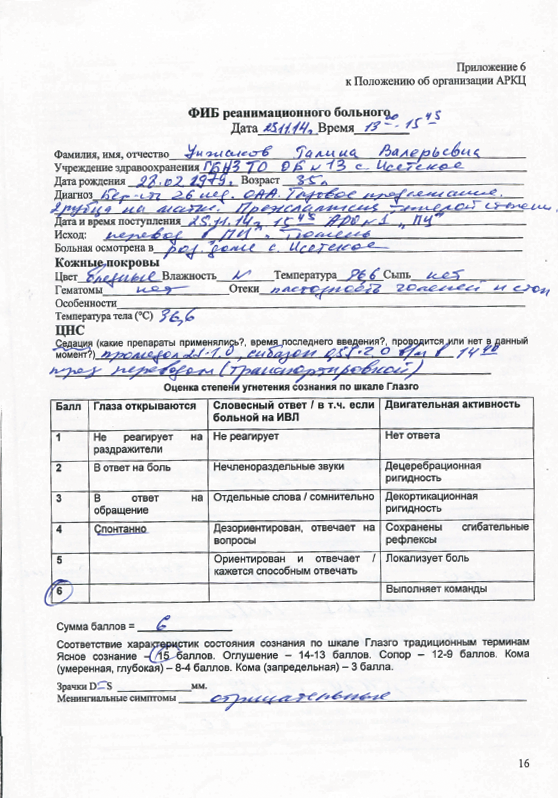 Приложение 6
к Положению об организации АРКЦ
ФИБ реанимационного больного
Дата 25.11.14, Время 13 00 - 15 45
Фамилия, имя, отчество Галина Валерьевна
Учреждение здравоохранения ГБУЗ ТО ОБ №13 с. Исетское
Дата рождения 28.02.1979, Возраст 35л.
Диагноз Бер-ть 26 нед. ОАА. Тазовое предлежание.
на матке. степени.
Дата и время поступления 25.11.14, 15 45 АРО №1 "ПЦ"
Исход: перевод в ПЦ г. Тюмень
Больная осмотрена в род. доме с. Исетское
Кожные покровы
Цвет бледные Влажность N Температура 36,6 Сыпь нет
Гематомы нет Отеки пастозность голеней и стоп
Особенности
Температура тела (°C) 36,6
ЦНС
Седация (какие препараты применялись?, время последнего введения?, проводится или нет в данный
момент?) промедол 2% 1.0, сибазон 0,5% 2.0 в/м в 14 40
перед переводом (транспортировкой)
Оценка степени угнетения сознания по шкале Глазго
Балл Глаза открываются Словесный ответ / в т.ч. если Двигательная активность
больной на ИВЛ
1 Не реагирует на Не реагирует Нет ответа
раздражители
2 В ответ на боль Нечленораздельные звуки Децеребрационная
ригидность
3 В ответ на Отдельные слова / сомнительно Декортикационная
обращение ригидность
4 Спонтанно Дезориентирован, отвечает на Сохранены сгибательные
вопросы рефлексы
5 Ориентирован и отвечает / Локализует боль
кажется способным отвечать
6 Выполняет команды
Сумма баллов = 6
Соответствие характеристик состояния сознания по шкале Глазго традиционным терминам
Ясное сознание – 15 баллов. Оглушение – 14-13 баллов. Сопор – 12-9 баллов. Кома
(умеренная, глубокая) – 8-4 баллов. Кома (запредельная) – 3 балла.
Зрачки D=S мм.
Менингиальные симптомы отрицательные
16